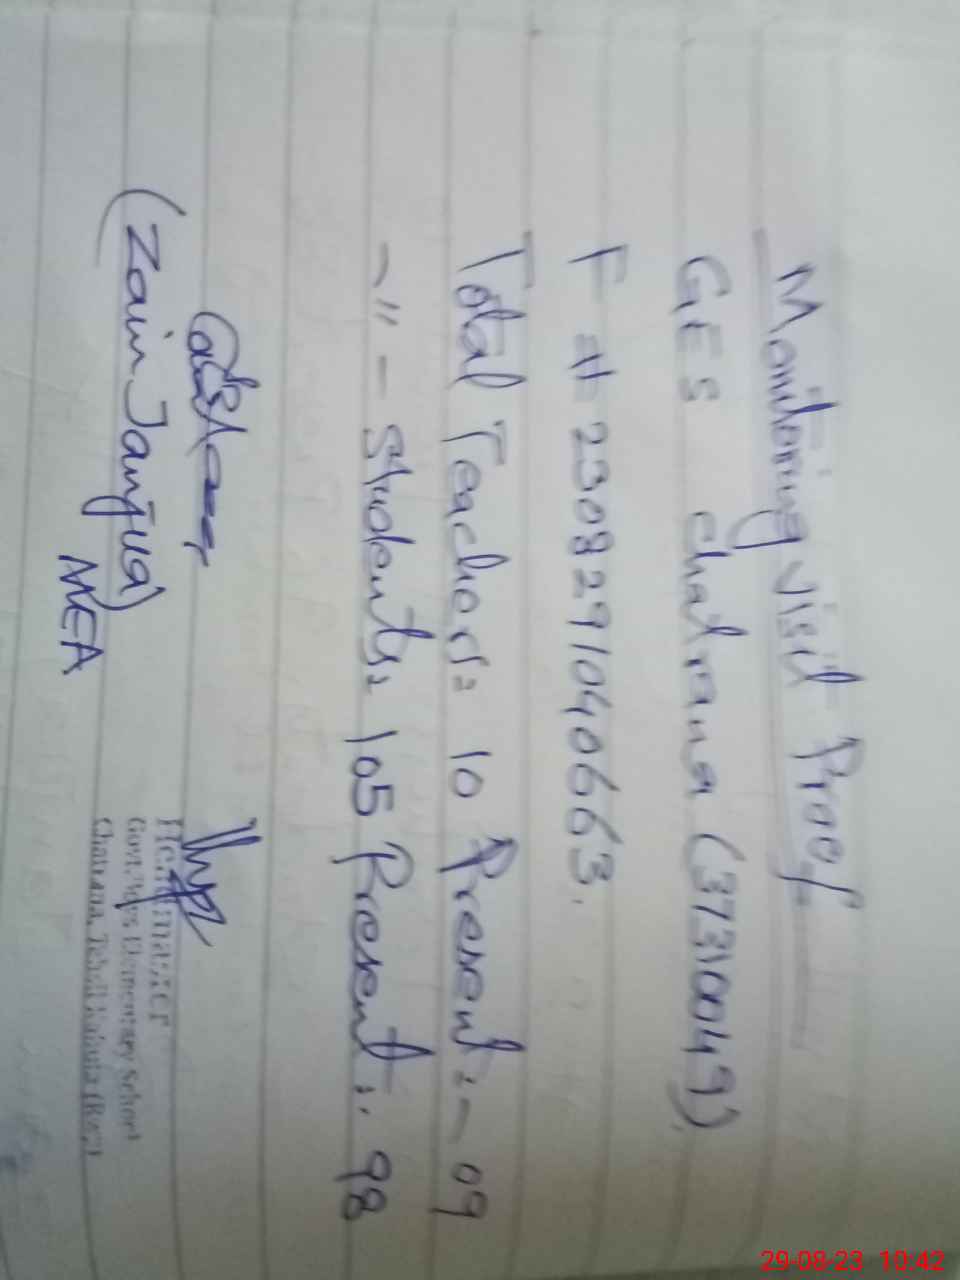 Monitoring visit Proof
GES chatrana (37310049)
F # 230829104066 3.
Total Teachers = 10 Present :- 09
-〃- Students = 105 Present :. 98
(Zain Janjua)
MEA
Headmaster
Govt. Boys Elementary School
Chatrana, Tehsil Kahuta (Rwp)
29-08-23 10:42